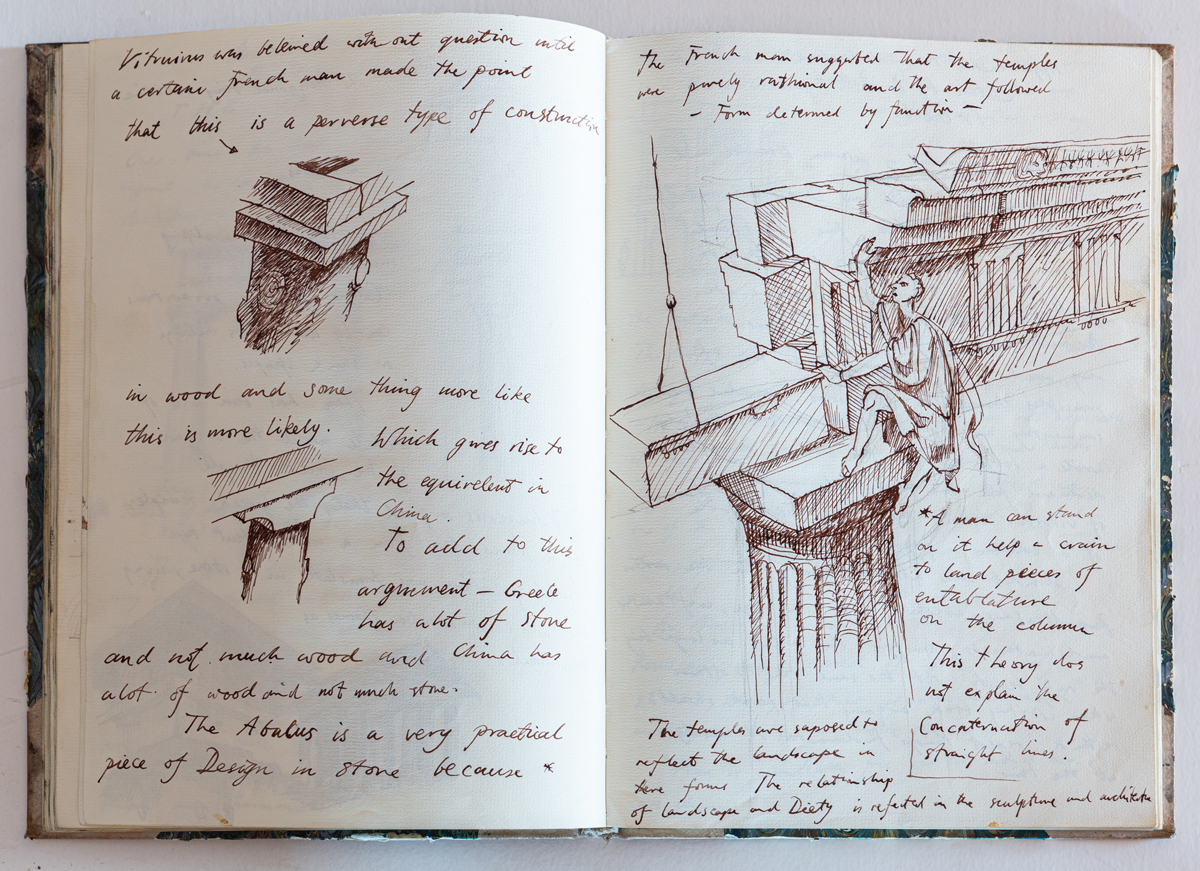 Vitruvius was beleived without question until
a certain French man made the point
that this is a perverse type of construction
in wood and some thing more like
this is more likely.
Which gives rise to
the equivelent in
China.
To add to this
argument – Greece
has a lot of stone
and not much wood and China has
a lot of wood and not much stone.
The Abakus is a very practical
piece of Design in stone because *
the French man suggested that the temples
were purely rathional and the art followed
– Form determed by function –
*A man can stand
on it help a crain
to land pieces of
entablature
on the column
This theory dos
not explain the
Concaternation of
straight lines.
The temples are saposed to
reflect the landscape in
there forms The relationship
of landscape and Diety is reflected in the sculpture and architecture